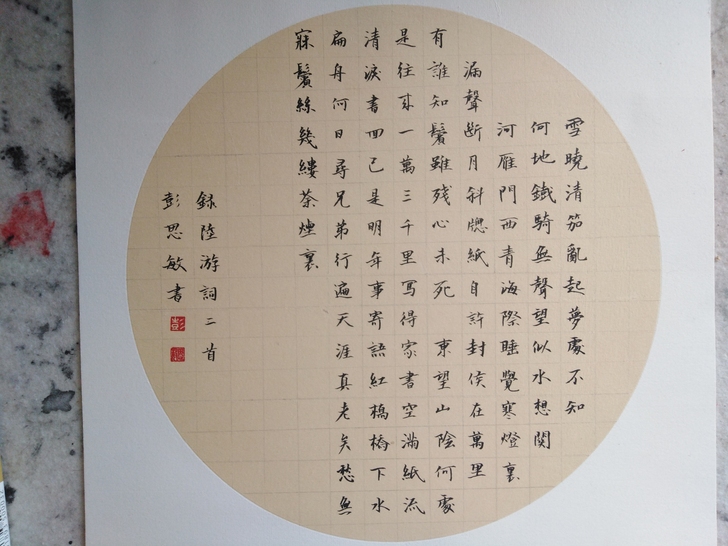 雪曉清笳亂起夢處不知
何地鐵騎無聲望似水想関
河雁門西青海際睡覺寒燈裏
漏聲斷月斜牕紙自許封侯在萬里
有誰知鬢雖殘心未死 東望山陰何處
是往来一萬三千里寫得家書空滿紙流
清淚書回已是明年事寄語紅橋橋下水
扁舟何日尋兄弟行遍天涯真老矣愁無
寐鬢絲幾縷茶煙裏
録陸游詞二首
彭思敏書
彭